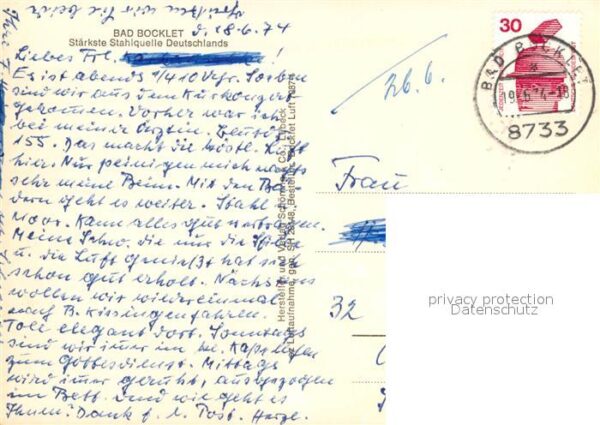 grüßen wir Sie beide
BAD BOCKLET
Stärkste Stahlquelle Deutschlands
d. 18.6.74
Liebes Frl. !
Es ist abends 1/4 10 Uhr. Soeben
sind wir aus dem Kurkonzert
gekommen. Vorher war ich
bei meiner Ärztin.
155. Das macht die köstl. Luft
hier. Nur peinigen mich noch
sehr meine Beine. Mit den Bä-
dern geht es weiter. Stahl
Moor. Kann alles gut vertragen.
Meine Schw. die nur die
u. die Luft genießt hat sich
schon gut erholt. Nächstens
wollen wir wieder einmal
nach B. Kissingen fahren.
Toll elegant dort. Sonntags
sind wir immer im
zum Gottesdienst. Mittags
wird immer geruht, ausgezogen
im Bett. Und wie geht es
Ihnen? Dank f. d. Post. Herzl.
Hersteller und Verlag Schöning & Co., Lübeck
Luftaufnahme, gen. SH
30
BAD BOCKLET
19.6.74-18
8733
Frau
32
privacy protection
Datenschutz